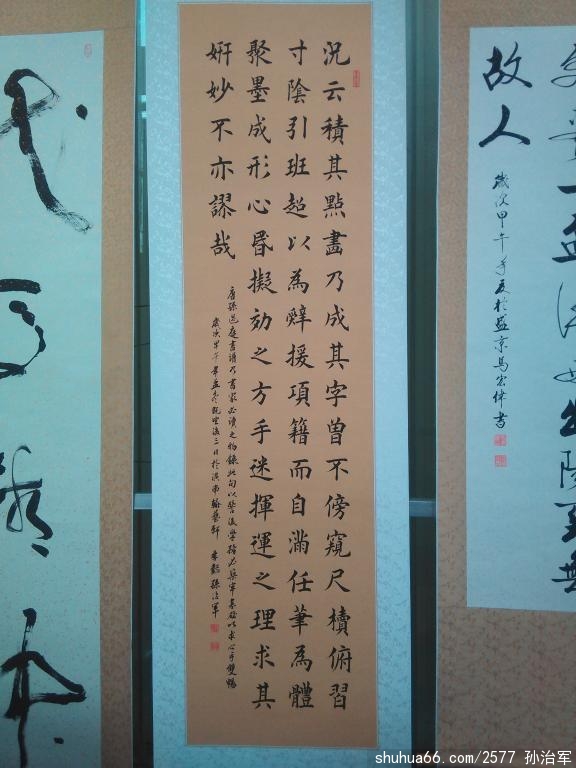 一盃酒西出陽關無
故人
歲次甲午年夏於盛京馬宏偉書
況云積其點畫乃成其字曾不傍窺尺牘俯習
寸陰引班超以為辤援項籍而自滿任筆為體
聚墨成形心昬擬効之方手迷揮運之理求其
妍妙不亦謬哉
唐孫過庭書譜乃書家必讀之物錄此句以警後學務必築牢基礎以求心手雙暢
歲次甲午年孟冬既望後三日於濱南翰藝軒 孫治軍
shuhua66.com/2577 孙治军